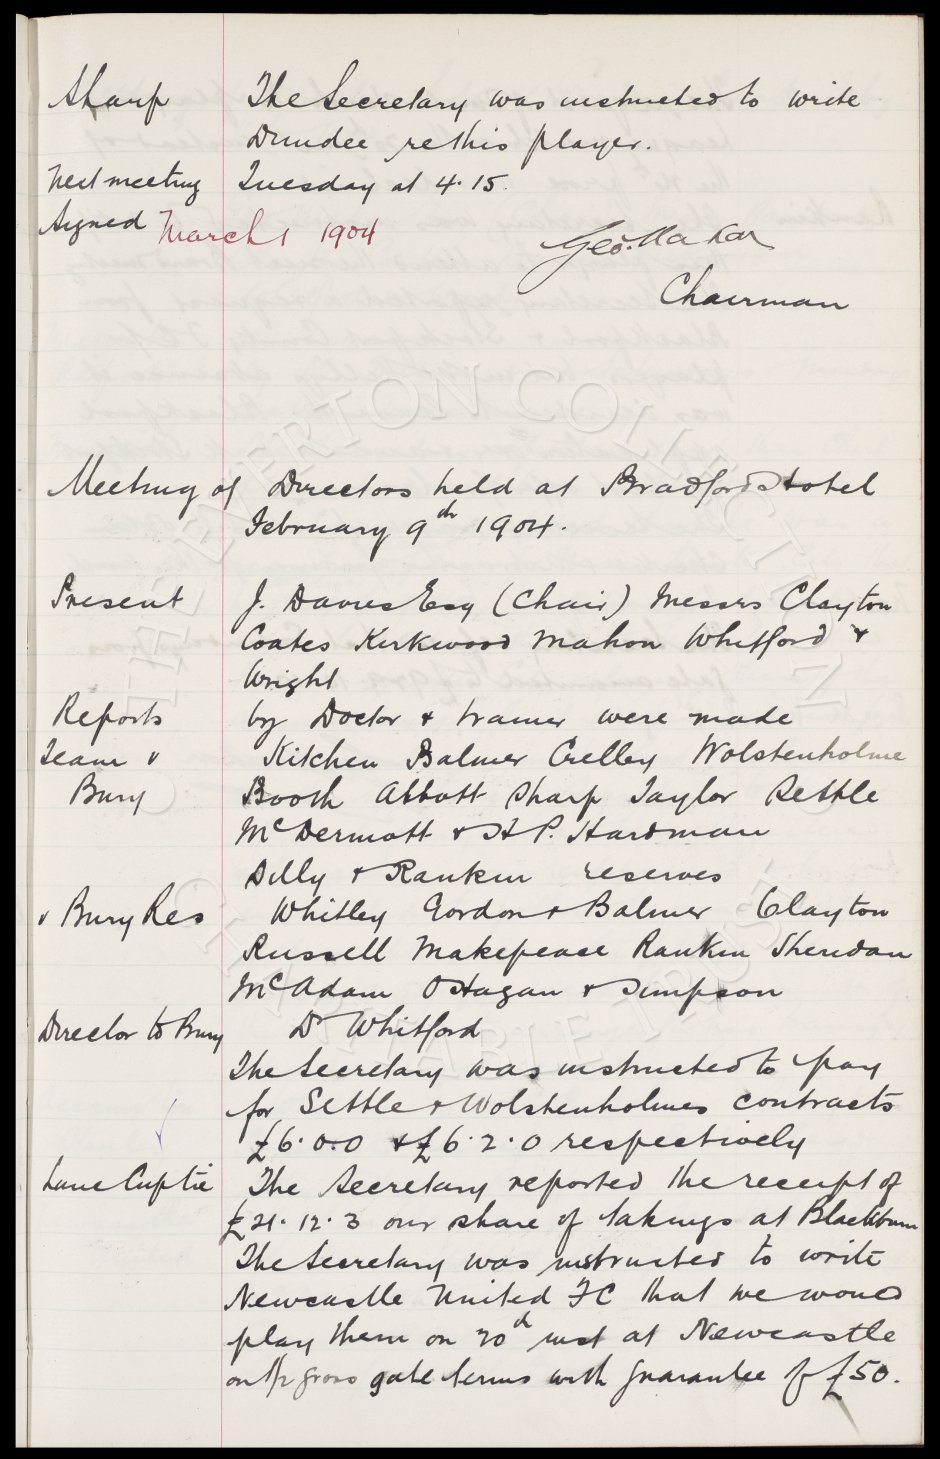 Sharp The Secretary was instructed to write
Dundee re this player.
Next meeting Tuesday at 4.15.
Signed March 1 1904
Geo. Mahon
Chairman
Meeting of Directors held at Bradford Hotel
February 9th 1904.
Present J. Davies Esq (Chair) Messrs Clayton
Coates Kirkwood Mahon Whitford &
Wright
Reports by Doctor & trainer were made
Team v Kitchen Balmer Crelley Wolstenholme
Bury Booth Abbott Sharp Taylor Settle
McDermott & H P. Hardman
Dilly & Rankin reserves
v Bury Res Whitley Gordon & Balmer Clayton
Russell Makepeace Rankin Sheridan
McAdam O'Hagan & Simpson
Director to Bury Dr Whitford
The Secretary was instructed to pay
for Settle & Wolstenholmes contracts
£6.0.0 & £6.2.0 respectively
Lanc Cup tie The Secretary reported the receipt of
£21.12.3 our share of takings at Blackburn
The Secretary was instructed to write
Newcastle United FC that we would
play them on 20d inst at Newcastle
on ½ gross gate terms with guarantee of £50.
THE EVERTON COLLECTION
CHARITABLE TRUST